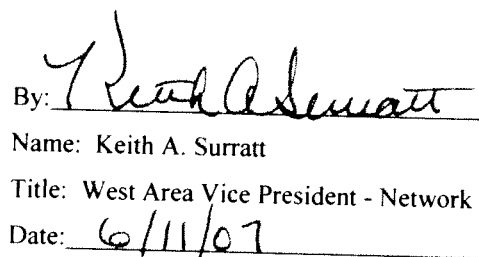 By: Keith A Surratt
Name: Keith A. Surratt
Title: West Area Vice President - Network
Date: 6/11/07